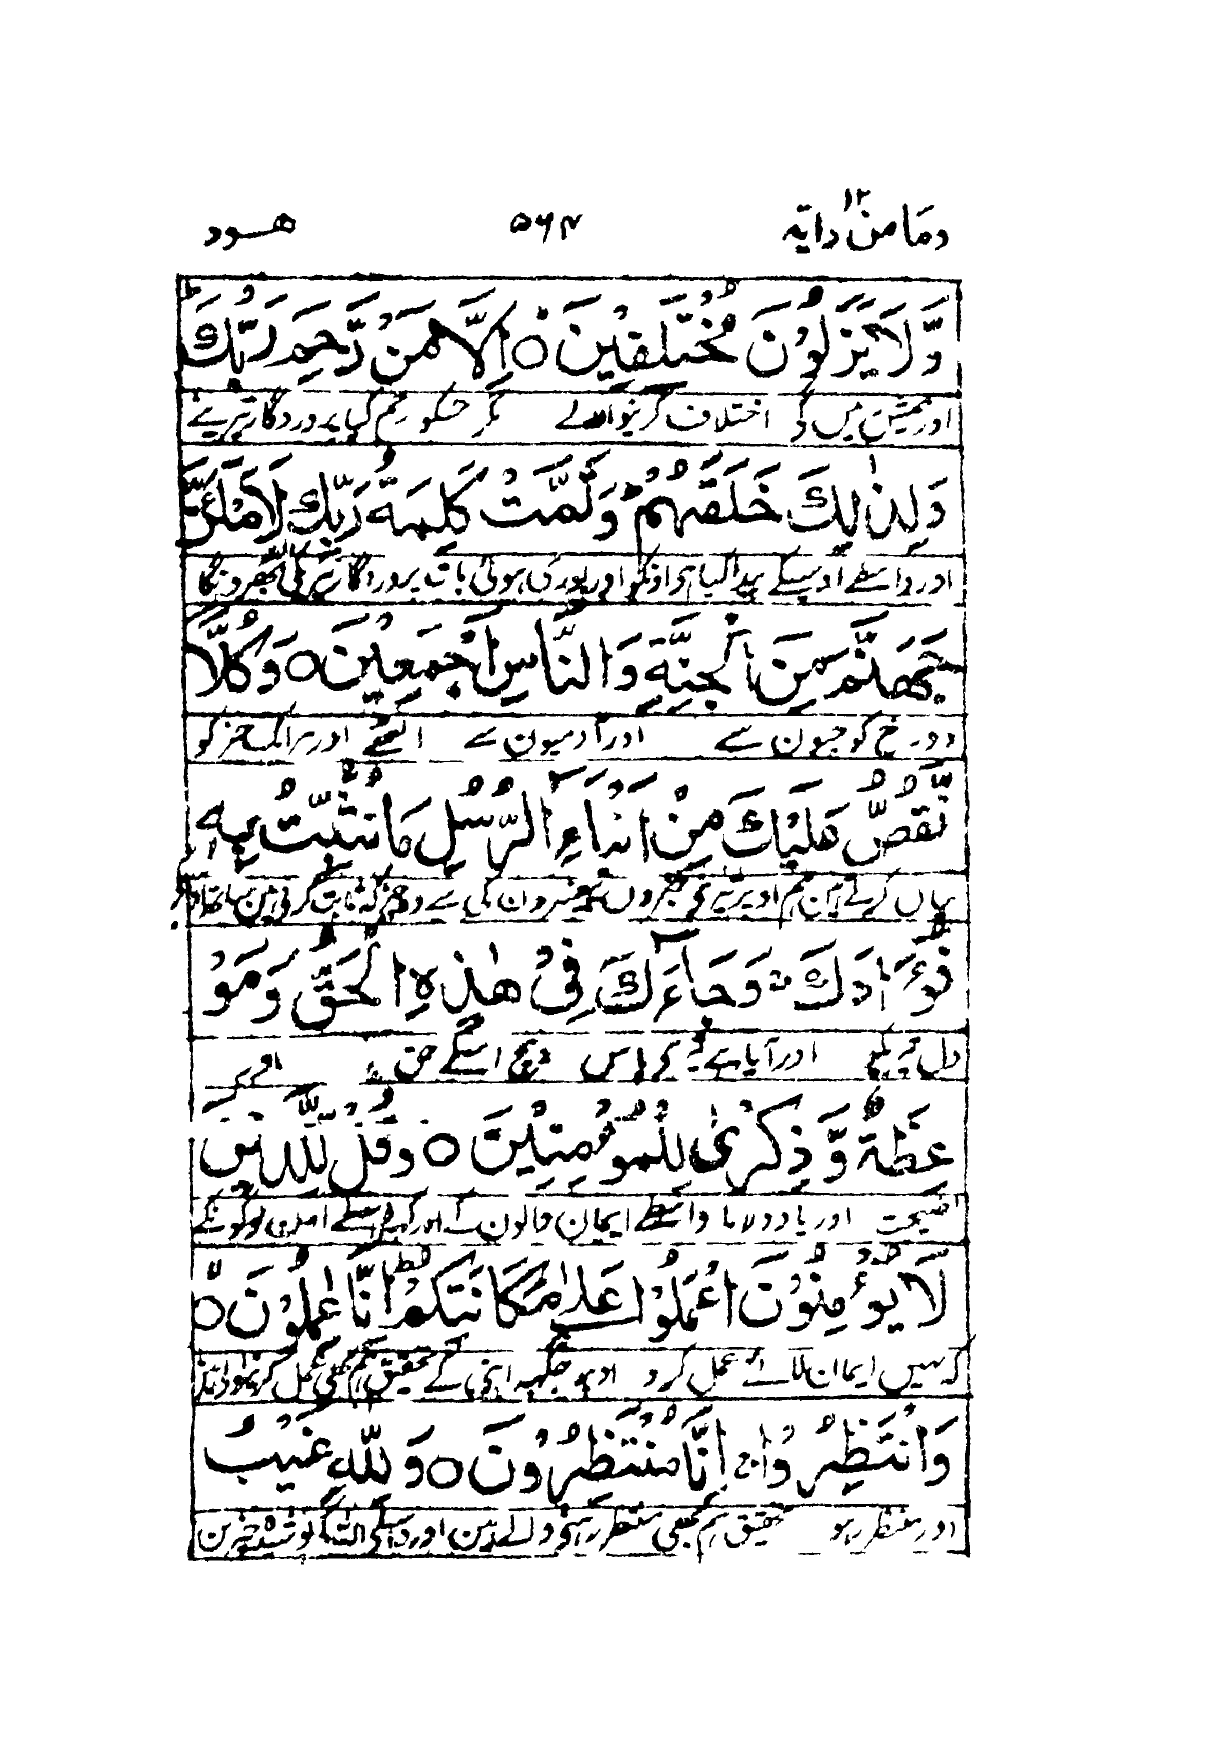 وما من دابة ١٢ ۵۶۴ هود
وَّلَا يَزَالُوْنَ مُخْتَلِفِيْنَ ○ اِلَّا مَنْ رَّحِمَ رَبُّكَ
اور ہمیشہ رہیں گی اختلاف کرنیوالے مگر جسکو رحم کیا پروردگار تیرے نے
وَلِذٰلِكَ خَلَقَهُمْ وَتَمَّتْ كَلِمَةُ رَبِّكَ لَاَمْلَئَنَّ
اور واسطے اسیکے پیدا کیا ہی اونکو اور پوری ہوئی بات پروردگار تیرے کی البتہ بھرونگا
جَهَنَّمَ مِنَ الْجِنَّةِ وَالنَّاسِ اَجْمَعِيْنَ ○ وَكُلًّا
دوزخ کو جنون سے اور آدمیون سے اکٹھے اور ہر ایک چیز کو
نَّقُصُّ عَلَيْكَ مِنْ اَنْۢبَاءِ الرُّسُلِ مَا نُثَبِّتُ بِهٖ
بیان کرتے ہین ہم اوپر تیرے خبروں پیغمبرون کی سے وہ چیز کہ ثابت کرتے ہین ساتھ
فُؤَادَكَ ۚ وَجَاءَكَ فِىْ هٰذِهِ الْحَقُّ وَمَوْ
دل تیرے اور آیا ہے تیرے پاس بیچ اسکے حق اور
عِظَةٌ وَّذِكْرٰى لِلْمُؤْمِنِيْنَ ○ وَقُلْ لِّلَّذِيْنَ
نصیحت اور یاد دلانا واسطے ایمان والون کے اور کہہ واسطے اون لوگونکے
لَا يُؤْمِنُوْنَ اعْمَلُوْا عَلٰى مَكَانَتِكُمْ ؕ اِنَّا عٰمِلُوْنَ ○
کہ نہیں ایمان لاتے عمل کرو اوپر جگہہ اپنی کے تحقیق ہم بھی عمل کرنیوالے ہین
وَانْتَظِرُوْا ۚ اِنَّا مُنْتَظِرُوْنَ ○ وَلِلّٰهِ غَيْبُ
اور منتظر رہو تحقیق ہم بھی منتظر رہنی والے ہین اور واسطے اللہ کے پوشیدہ چیزین